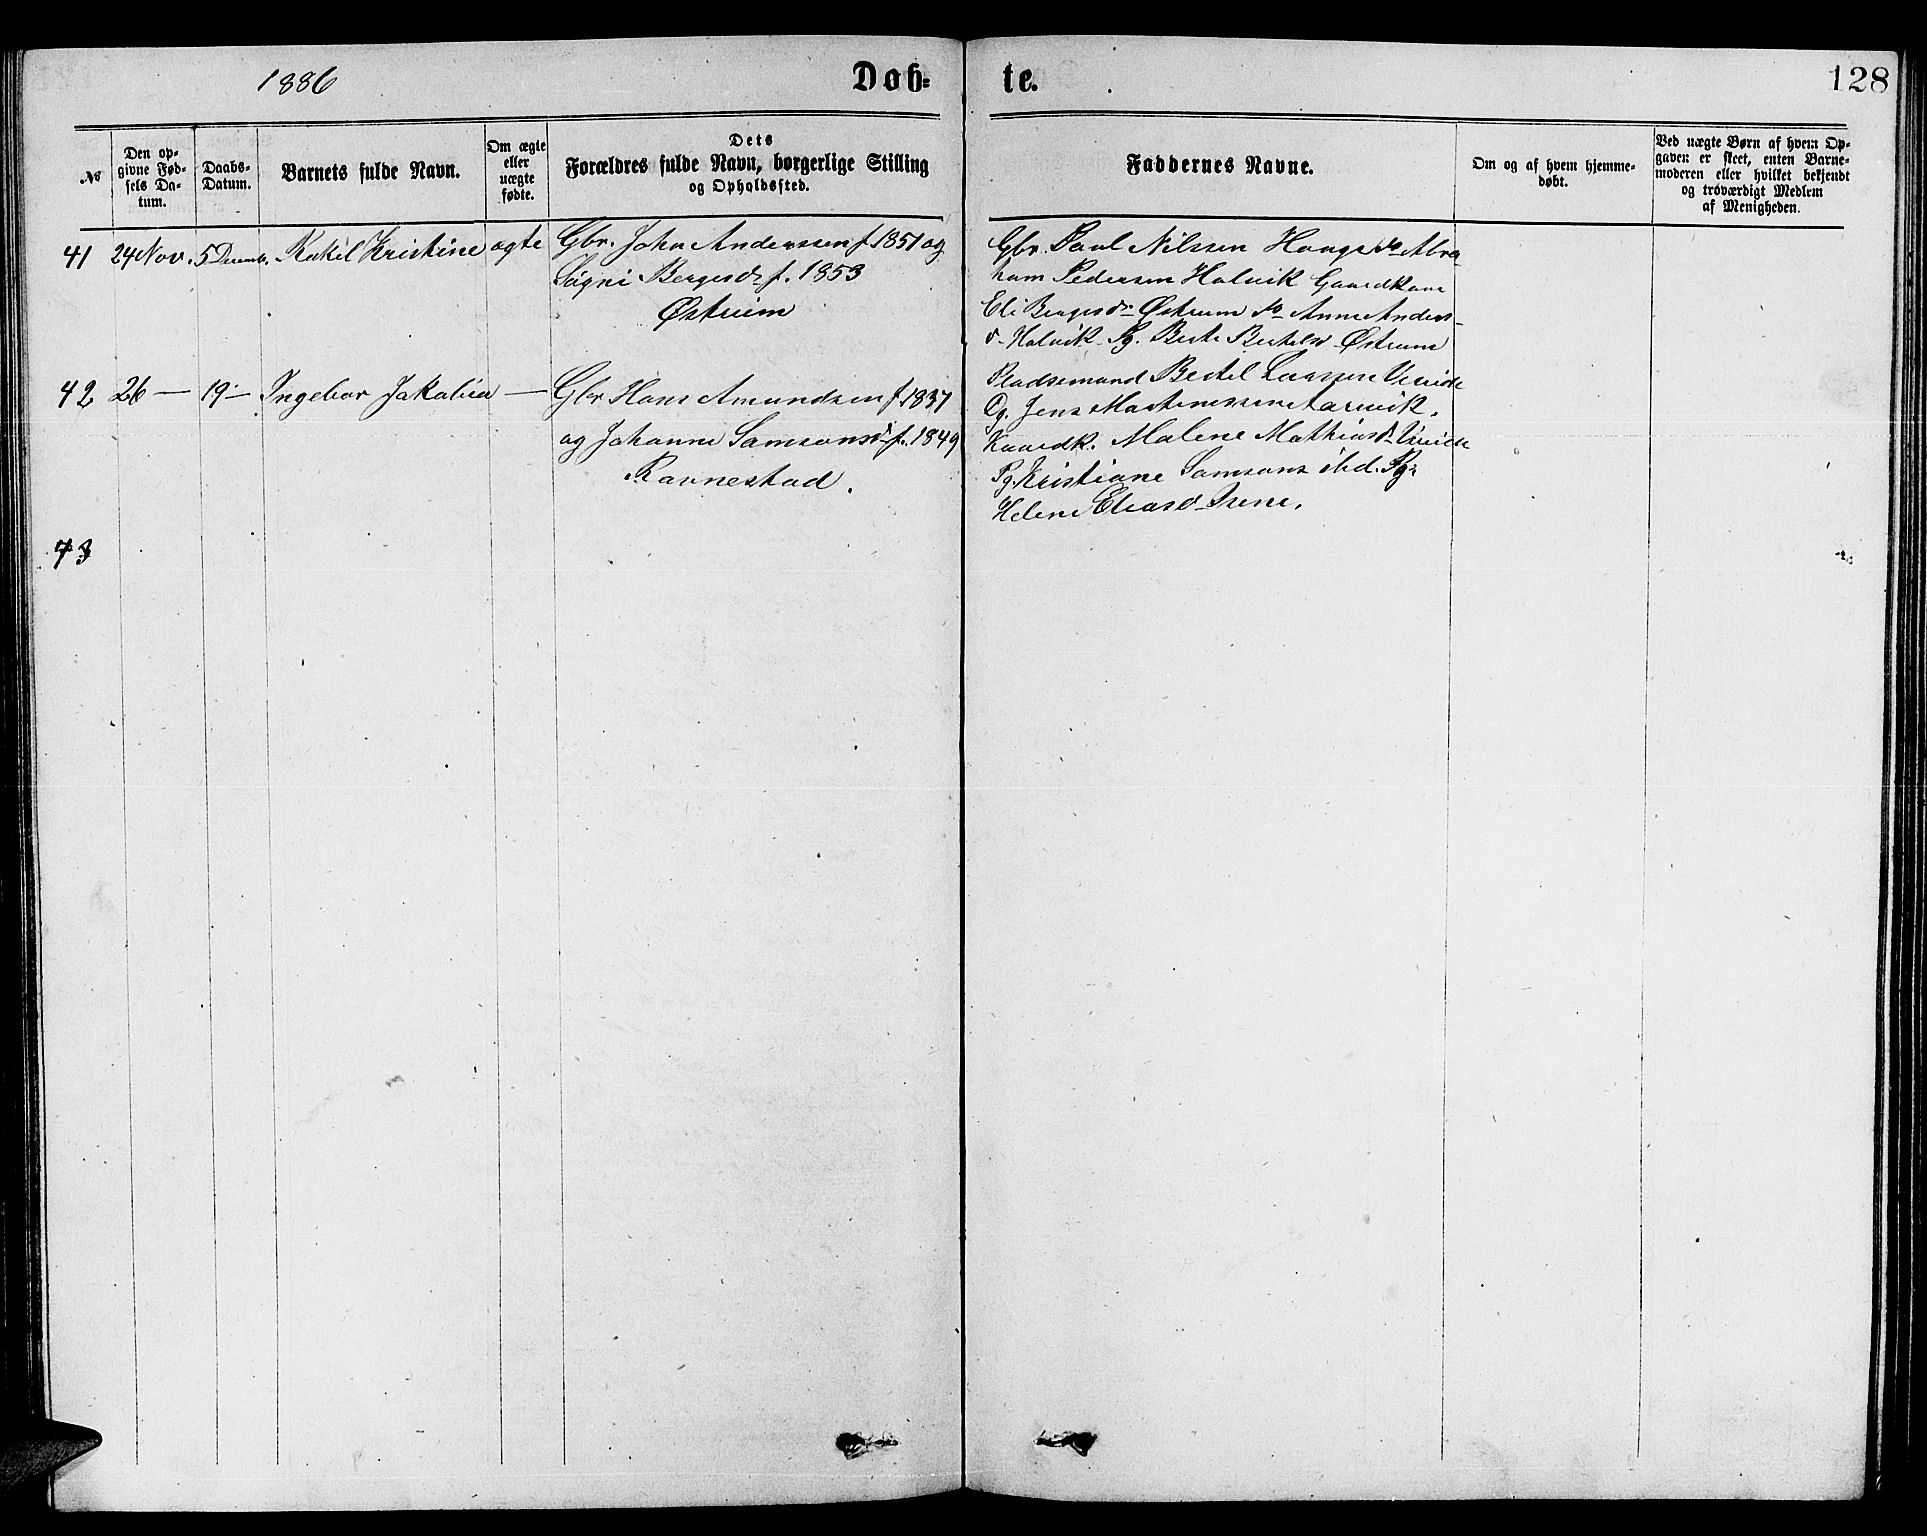 1886 Døb= te. 128
№ Den op-
givne Fød-
sels Da-
tum.
Daabs-
Datum.
Barnets fulde Navn.
Om ægte
eller
uægte
fødte.
Dets
Forældres fulde Navn, borgerlige Stilling
og Opholdssted.
Faddernes Navne.
Om og af hvem hjemme-
døbt.
Ved uægte Børn af hvem Op-
gaven er skeet, enten Barne-
moderen eller hvilket bekjendt
og troværdigt Medlem
af Menigheden.
41 24 Nov. 5 Decemb. Rakel Kristine ægte
Gbr. John Anderssen f. 1851 og
Signi Bergesd f. 1853
Østreim
Gbr. Paul Nilssen Hauge Abra-
ham Pedersen Halvik Gaardkone
Eli Bergesd Østreim Anne Anders-
d Halvik Pg. Berte Bertelsd Østreim
42 26 — 19 — Ingebor Jakobia —
Gbr Hans Amundsen f. 1837
og Johanne Samsonsd f. 1849
Ravnestad.
Pladsemand Bertel Larssen
Og. Jens Martinessen
Gaardk. Malene Mathiasd
Pg. Kristiane Samsons ibd. Pg.
Helene Eliasd
43